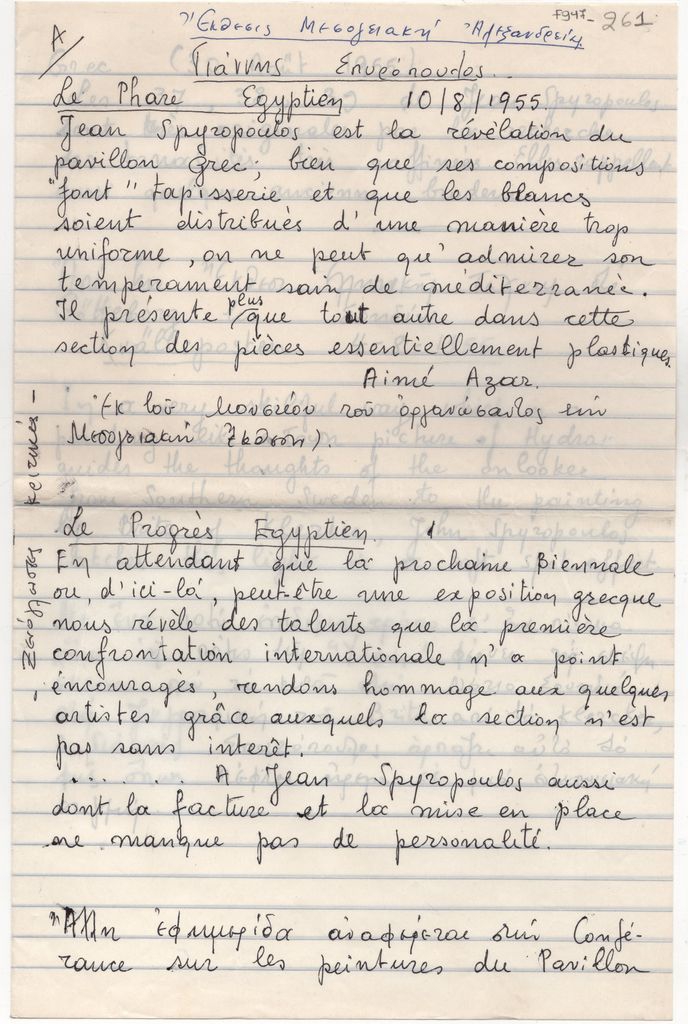 F947- 261
A/
Ἔκθεσις Μεσογειακή Ἀλεξανδρείας
Γιάννης Σπυρόπουλος..
Le Phare Egyptien 10/8/1955.
Jean Spyropoulos est la révélation du
pavillon grec; bien que ses compositions
"font" tapisserie et que les blancs
soient distribués d'une manière trop
uniforme, on ne peut qu'admirer son
temperament sain de méditerranée.
Il présente plus que tout autre dans cette
section des pièces essentiellement plastiques.
Aimé Azar.
Ἐκ τοῦ Μουσείου τοῦ ὀργανώσαντος τήν
Μεσογειακή Ἔκθεση).
Le Progrès Egyptien.
En attendant que la prochaine Biennale
ou, d'ici-là, peut-être une exposition grecque
nous révèle des talents que la première
confrontation internationale n'a point
encouragés, rendons hommage aux quelques
artistes grâce auxquels la section n'est
pas sans interêt.
. . . . . . A Jean Spyropoulos aussi
dont la facture et la mise en place
ne manque pas de personalité.
Ἄλλη ἐφημερίδα ἀναφέρεται στήν Confé-
rance sur les peintures du Pavillon
- Ξενόγλωσσες κριτικές -